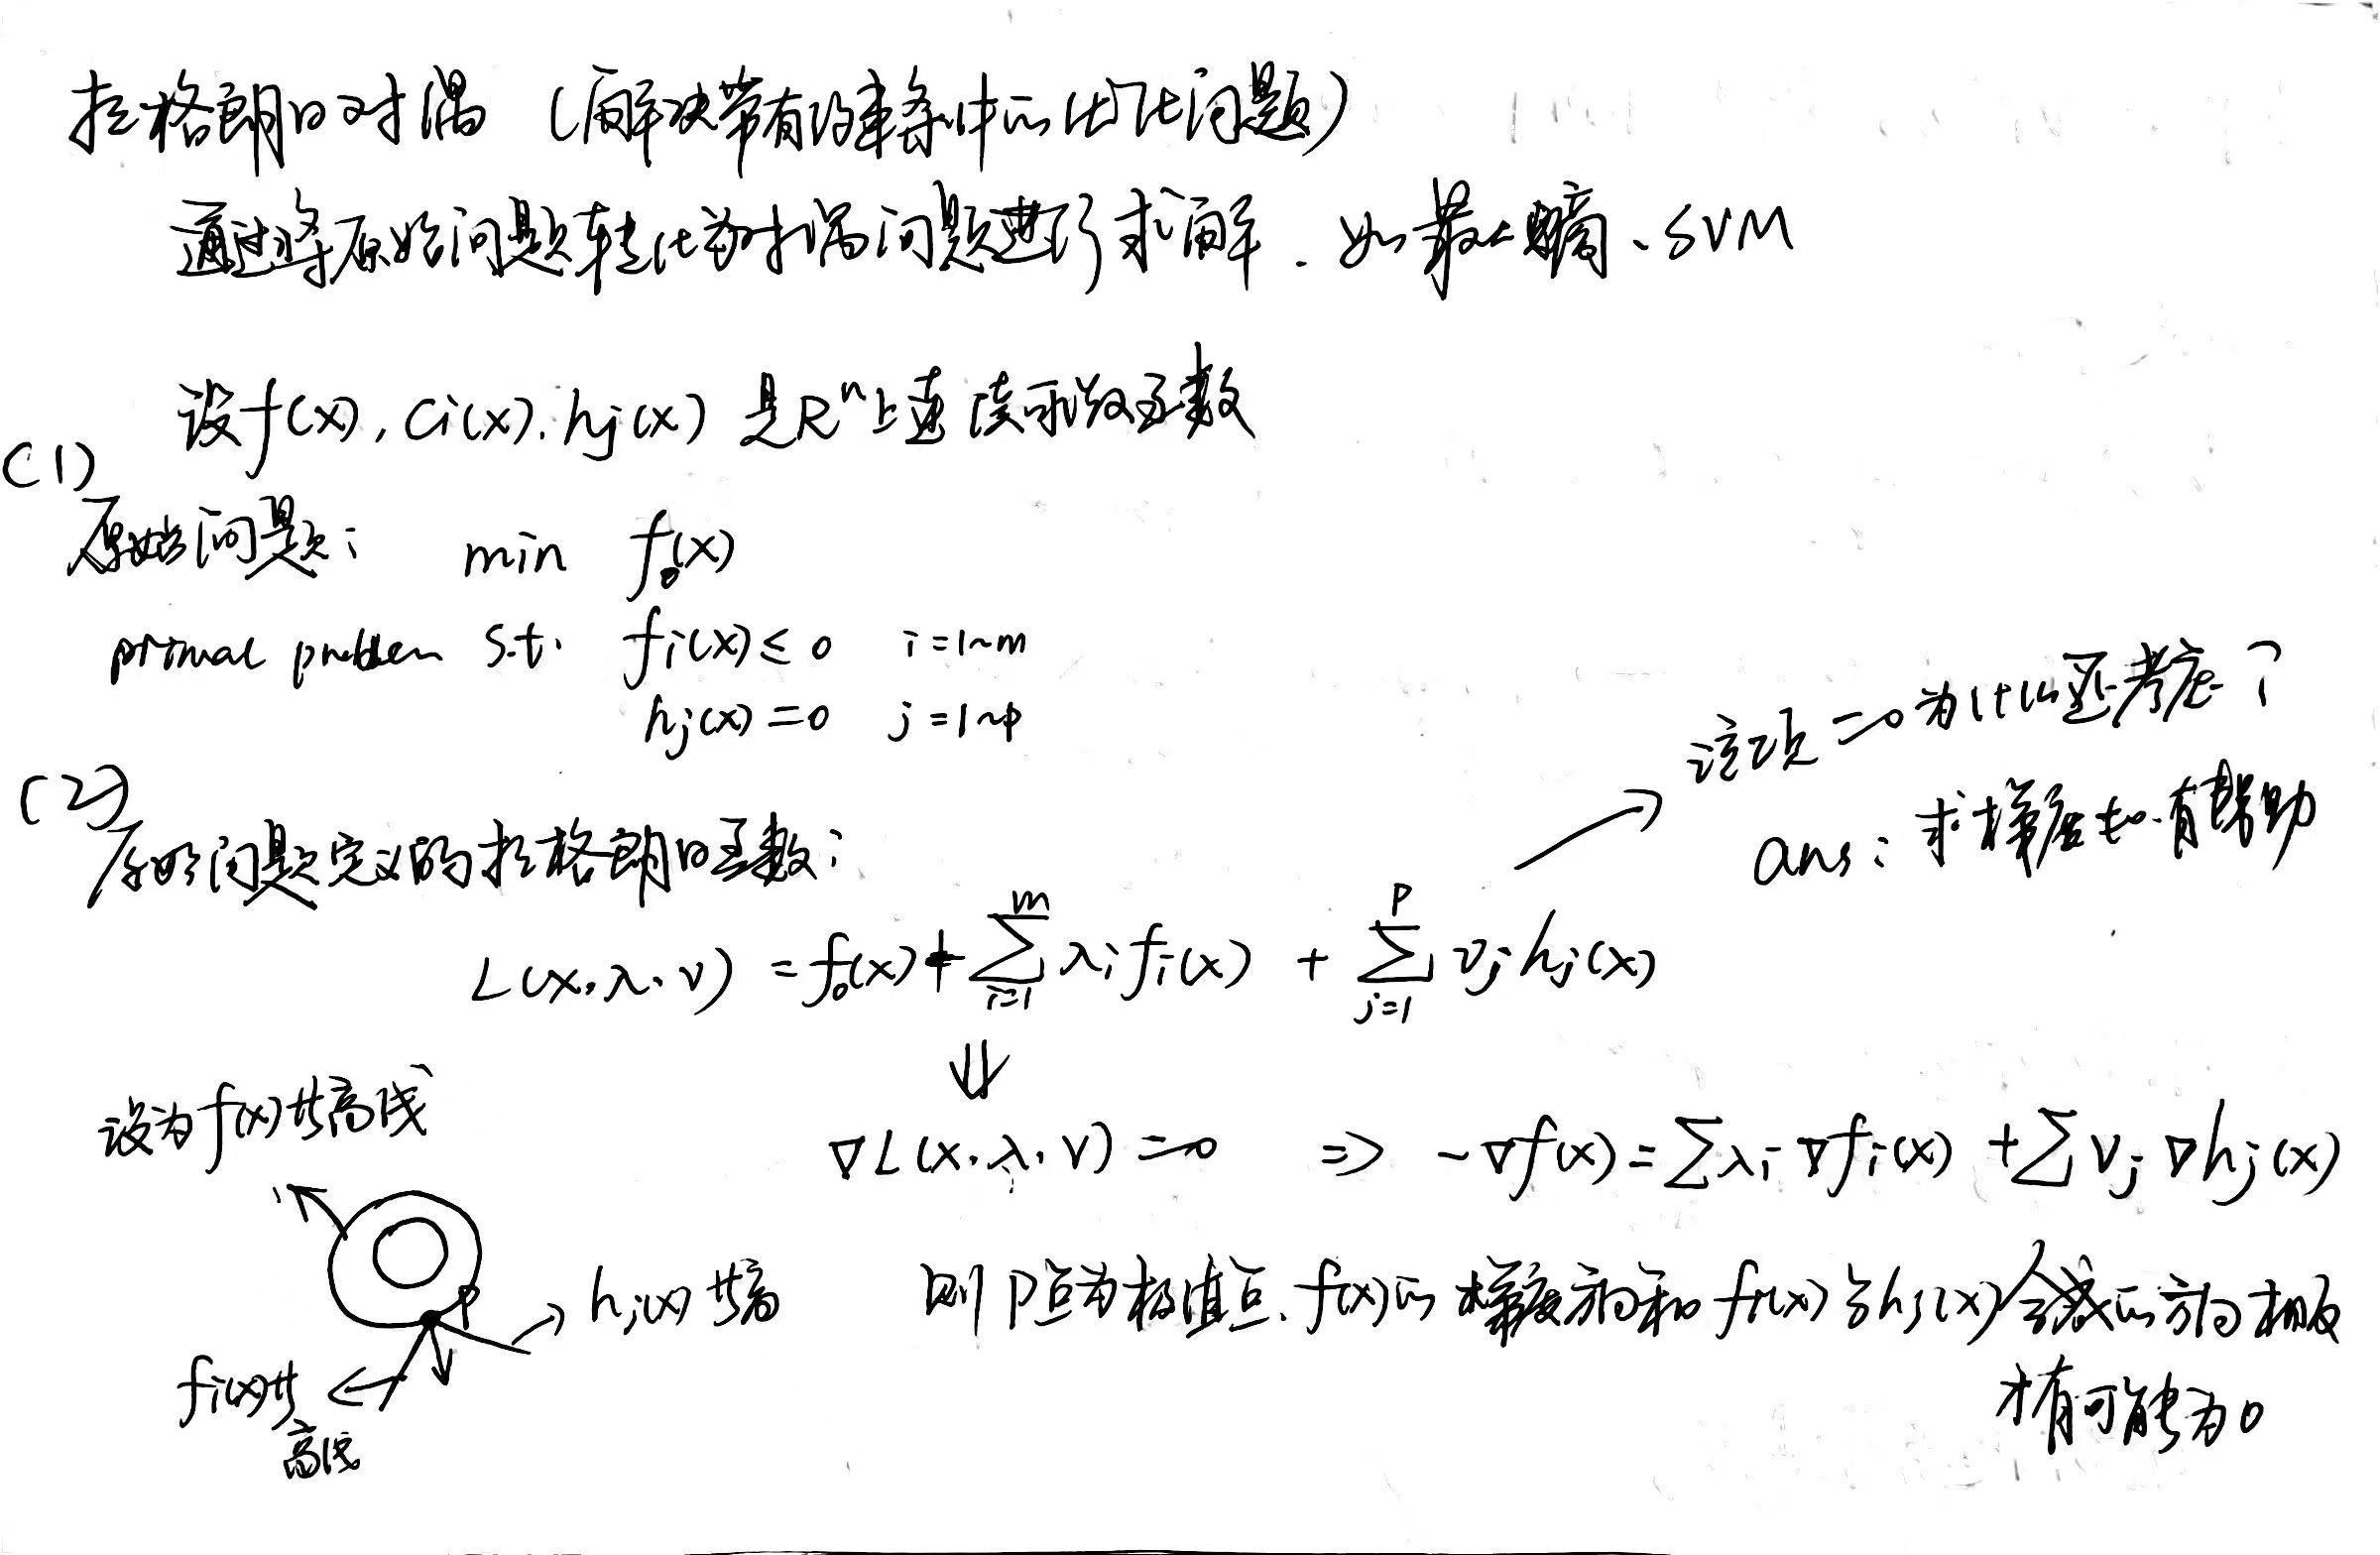 拉格朗日对偶 (解决带有约束条件的优化问题)
通过将原始问题转化为对偶问题进行求解. 如最大熵、SVM
设f(x), ci(x), hj(x) 是Rⁿ上连续可微函数
(1)
原始问题: min f₀(x)
primal problem s.t. fi(x) ≤ 0 i=1~m
hj(x) = 0 j=1~p
(2)
原始问题定义的拉格朗日函数:
该项=0为什么还考虑?
ans: 求梯度时有帮助
L(x, λ, ν) = f₀(x) + ∑_{i=1}^{m} λi fi(x) + ∑_{j=1}^{p} νj hj(x)
⇓
∇L(x, λ, ν) = 0 ⇒ -∇f(x) = ∑λi ∇fi(x) + ∑νj ∇hj(x)
设为f(x)等高线
p
hj(x)等高
fi(x)等
高线
则P点为极值点, f(x)的梯度方向和fi(x)与hj(x)合成的方向相反
才有可能为0